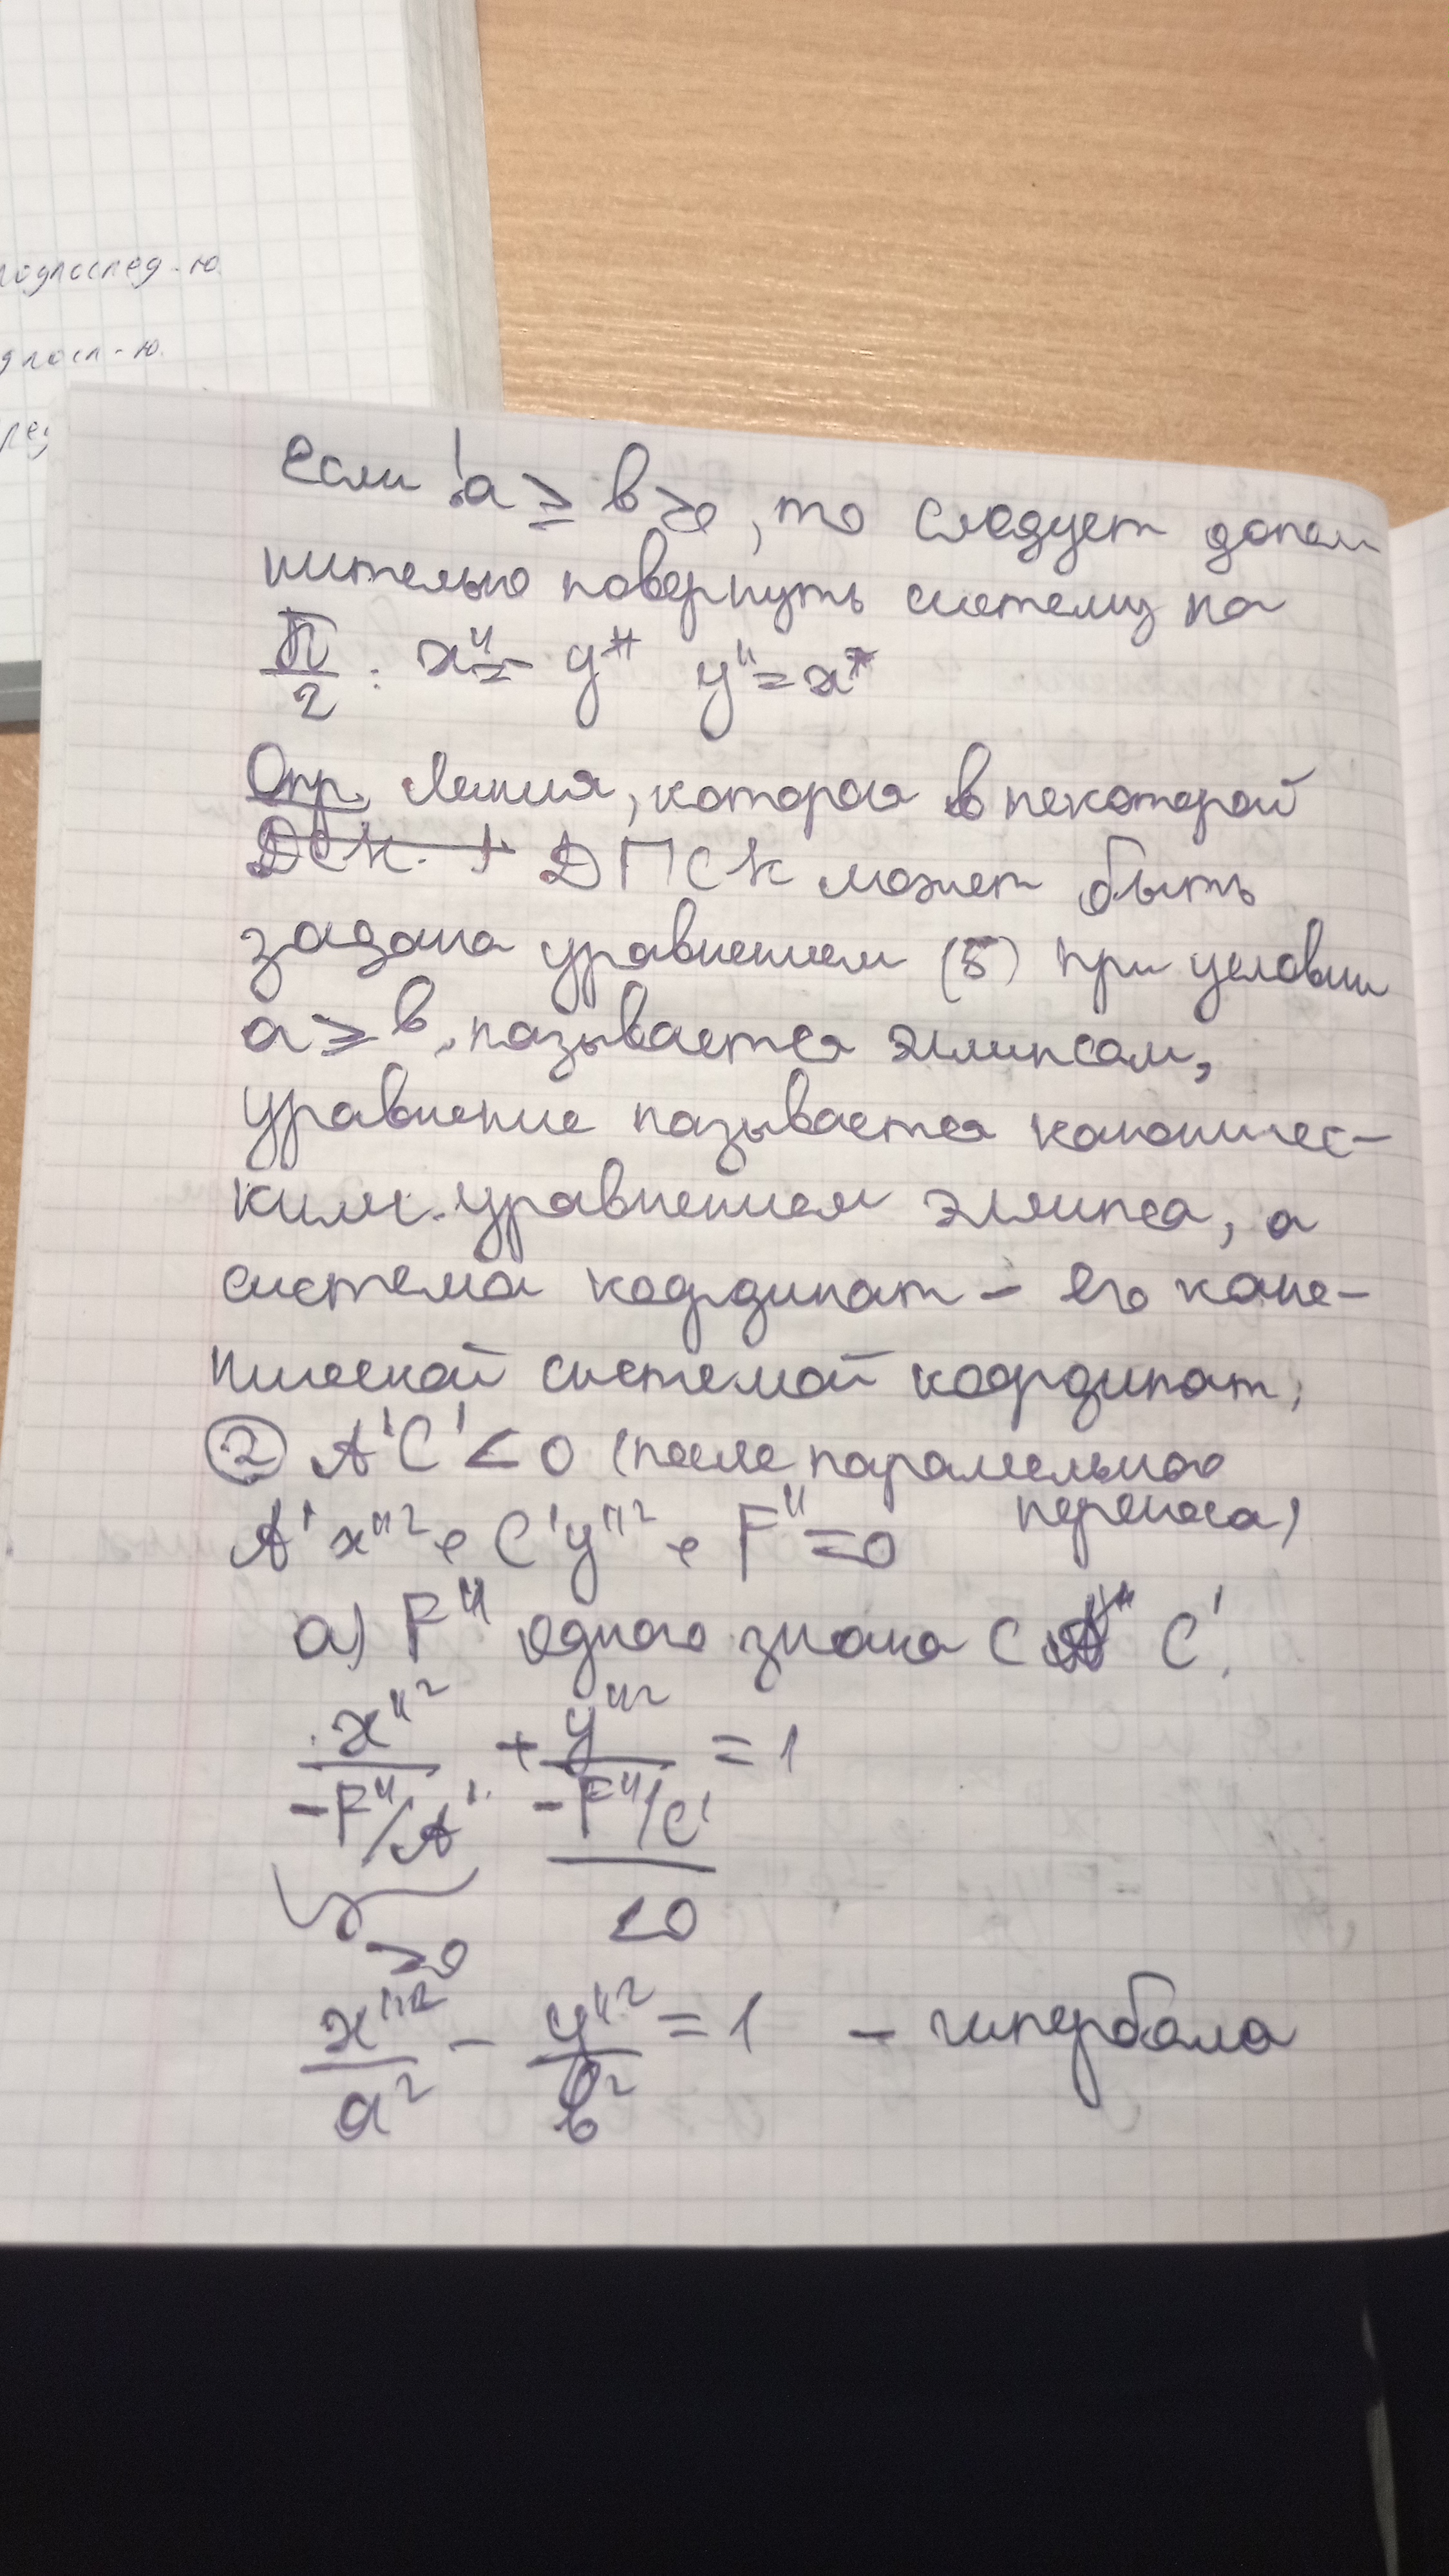 подпослед-ю.
Если !a ≥ b > 0, то следует допол
нительно повернуть систему на
π/2 : x'' = - y* y'' = x*
Опр. Линия, которая в некоторой
ДПСК может быть
задана уравнением (5) при условии
a ≥ b, называется эллипсом,
уравнение называется каноничес-
ким уравнением эллипса, а
система координат - его кано-
нической системой координат.
② A'C' < 0 (после параллельного
переноса)
A'x''² + C'y''² + F'' = 0
a) F'' одного знака с C'.
x''²/(-F''/A') + y''²/(-F''/C') = 1
>0 <0
x''²/a² - y''²/b² = 1 - гипербола